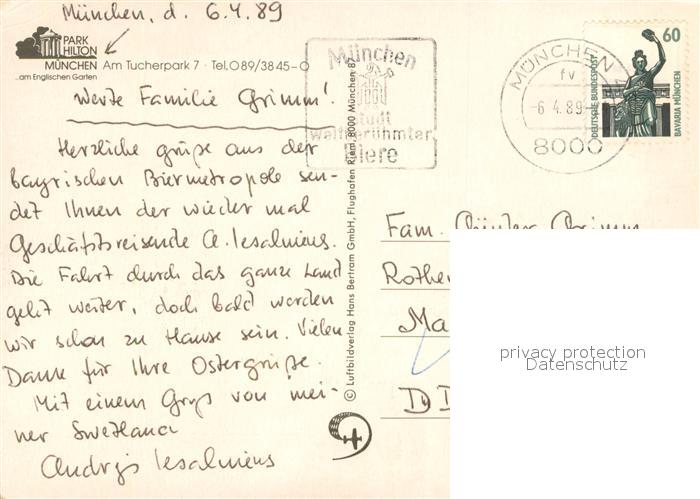 München, d. 6.4.89
PARK
HILTON
MÜNCHEN Am Tucherpark 7 · Tel. 089/3845-0
...am Englischen Garten
Werte Familie Grimm!
Herzliche grüße aus der
bayrischen Biermetropole sen-
det Ihnen der wieder mal
Geschäftsreisende A. Iesalnieks.
Die Fahrt durch das ganze Land
geht weiter, doch bald werden
wir schon zu Hause sein. Vielen
Dank für Ihre Ostergrüße.
Mit einem Gruß von mei-
ner Swetlana
Andrejs Iesalnieks
© Luftbildverlag Hans Bertram GmbH, Flughafen Riem, 8000 München 87
München
Stadt
weltberühmter
Biere
MÜNCHEN
fv
-6.4.89-
8000
60
DEUTSCHE BUNDESPOST
BAVARIA MÜNCHEN
Fam. Günter Grimm
Rothe
Ma
DD
privacy protection
Datenschutz